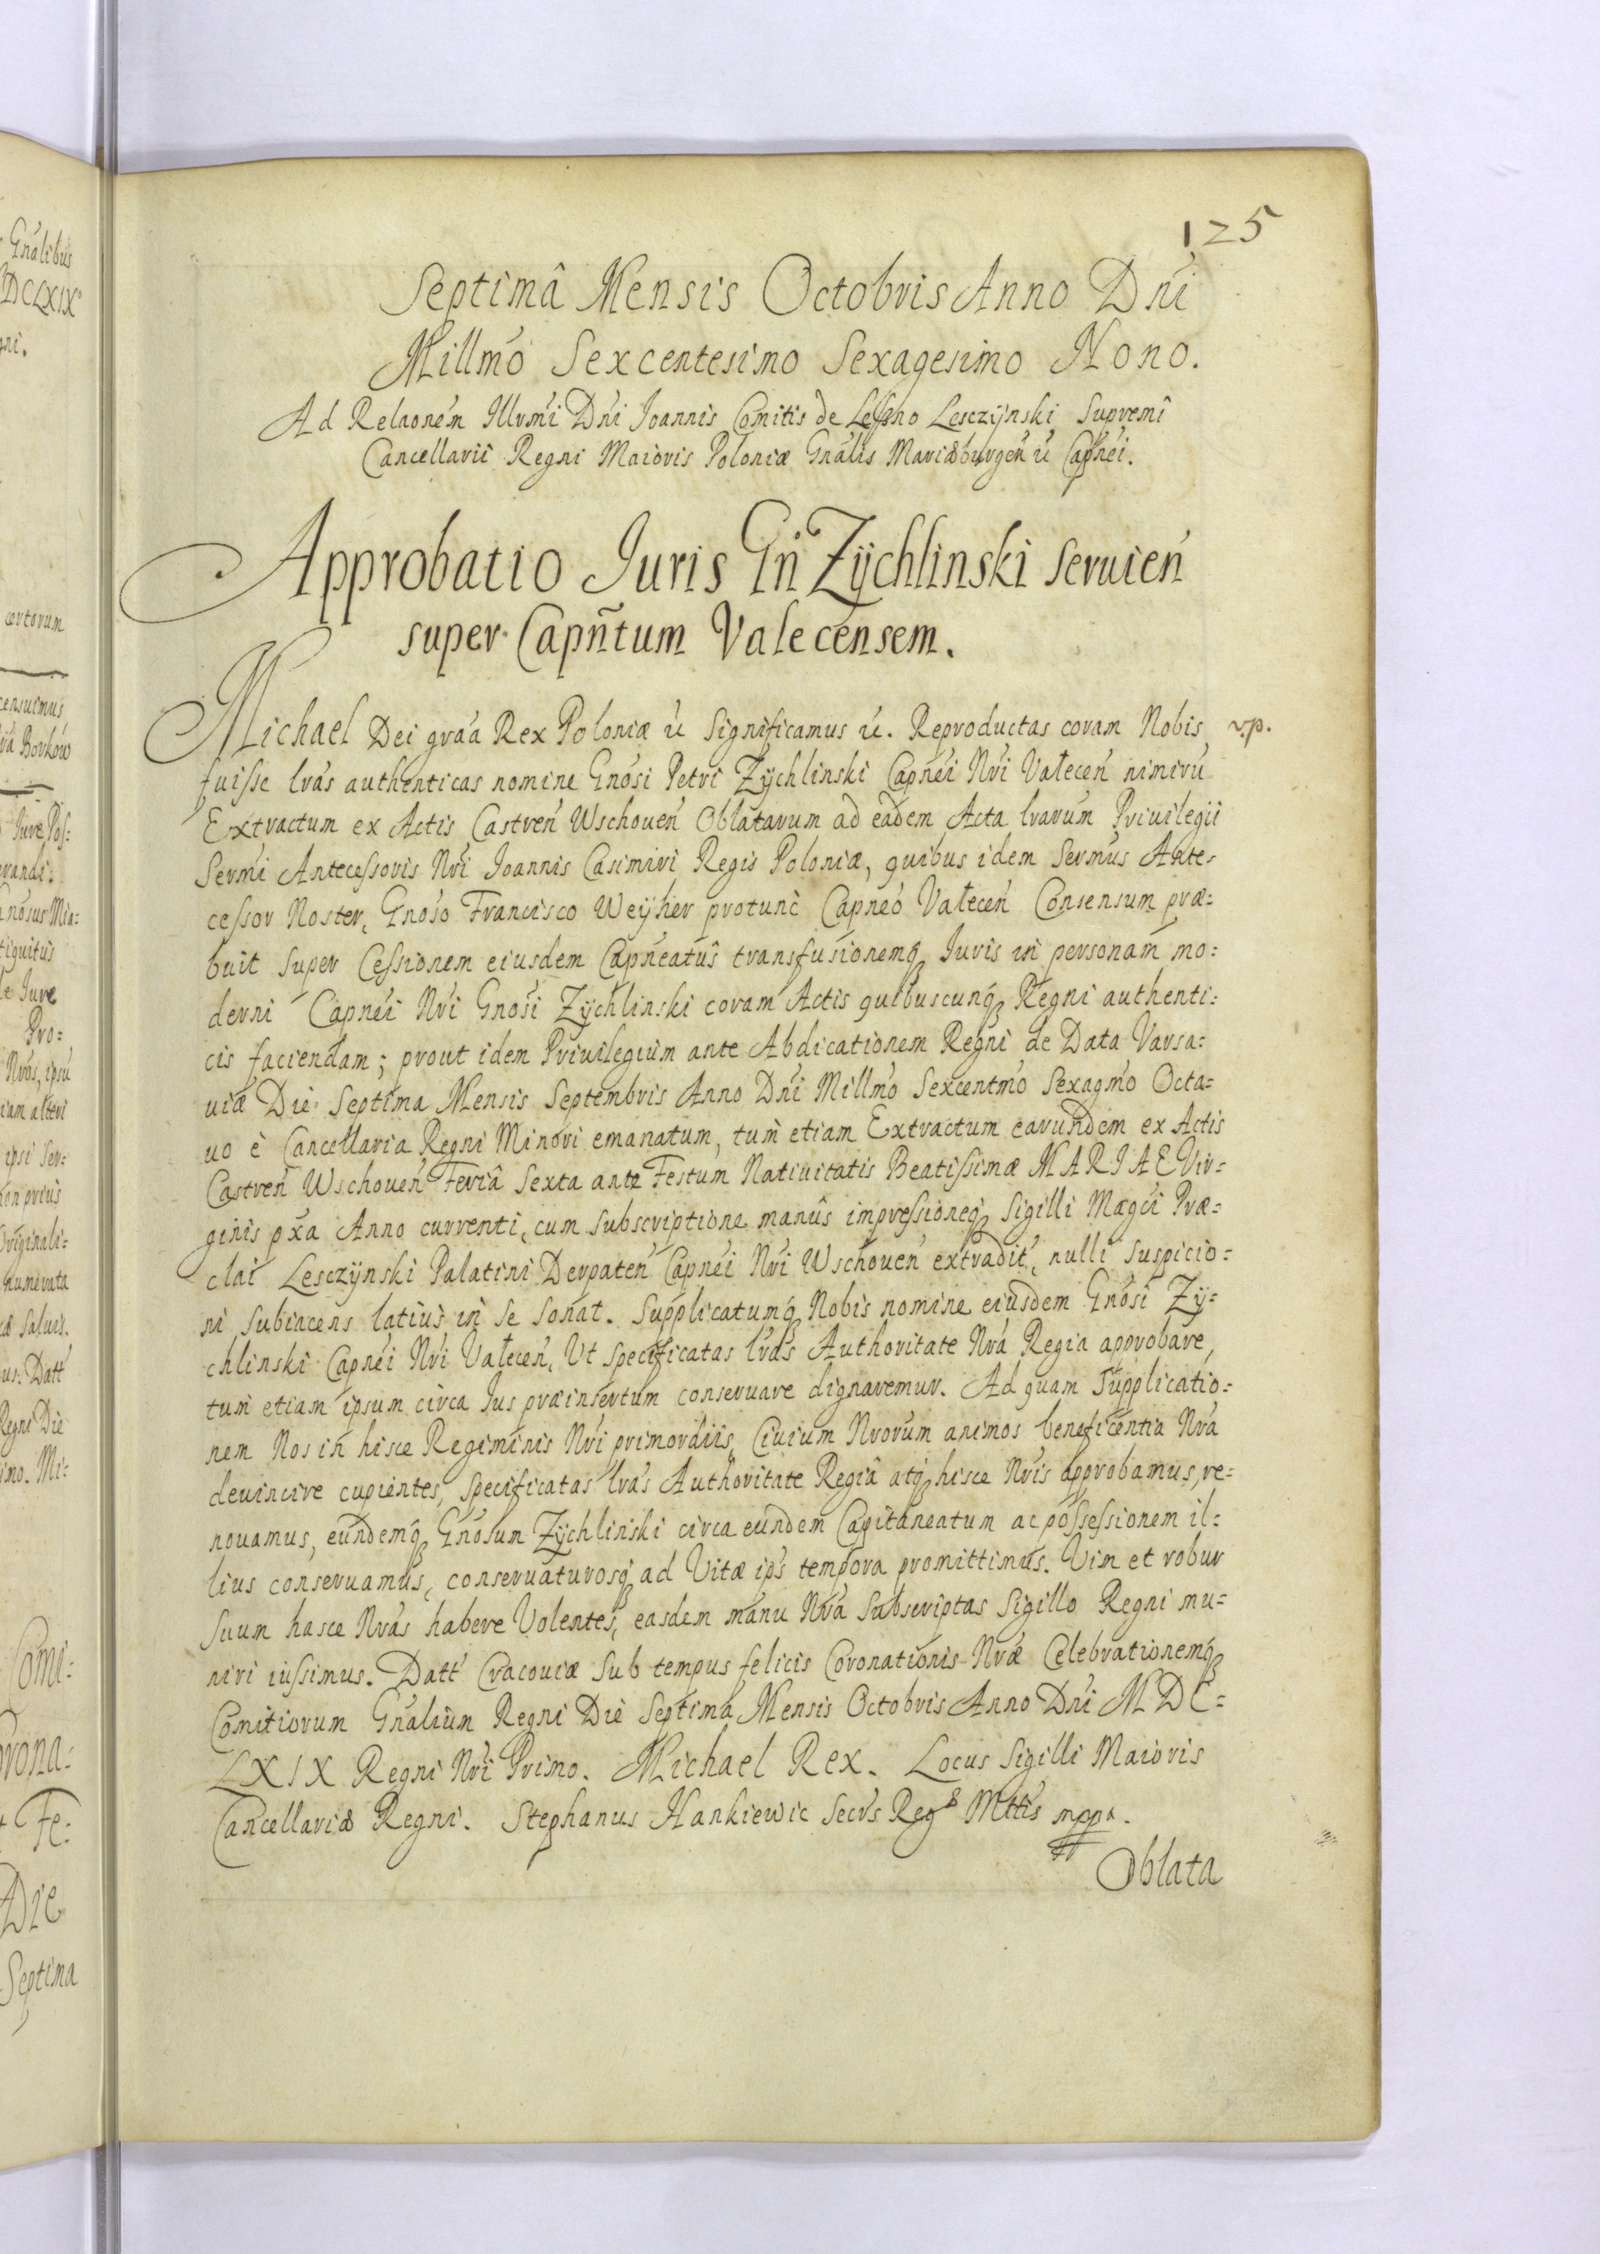 Gnalibus
DCLXIX
gni.
certorum
censuimus
Borków
Iure Pos:
erandi.
Gnosus Mia:
tiquitus
Iure
Pro:
Nros, ipsu
iam alteri
ipsi Ser:
non prius
Originali:
numerata
salvis.
us. Datt
Regni Die
imo. Mi:
Comi:
orona:
Fe:
Die
Septima
125
Septimâ Mensis Octobris Anno Dni
Millmo Sexcentesimo Sexagesimo Nono.
Ad Relaonem Illrmi Dni Ioannis Comitis de Lessno Lesczÿnski Supremi
Cancellarii Regni Maioris Poloniæ Gnalis Mariæburgen u Capnei.
Approbatio Iuris Gn Zÿchlinski seruien
super Capntum Valecensem.
Michael Dei graa Rex Poloniæ u Significamus u. Reproductas coram Nobis
vp.
fuisse lras authenticas nomine Gnosi Petri Zÿchlinski Capnei Nri Vałecen nimiru
Extractum ex Actis Castren Wschouen Oblatarum ad eadem Acta lrarum Priuilegii
Sermi Antecessoris Nri Ioannis Casimiri Regis Poloniæ, quibus idem Sermus Ante:
cessor Noster, Gnoso Francisco Weÿher protunc Capneo Vałecen Consensum præ:
buit super Cessionem eiusdem Capneatûs transfusionemq Iuris in personam mo:
derni Capnei Nri Gnosi Zÿchlinski coram Actis quibuscunq Regni authenti:
cis faciendam; prout idem Priuilegium ante Abdicationem Regni de Data Varsa:
uiæ Die Septima Mensis Septembris Anno Dni Millmo Sexcentmo Sexagmo Octa:
uo è Cancellaria Regni Minori emanatum, tum etiam Extractum earundem ex Actis
Castren Wschouen Feriâ Sexta ante Festum Natiuitatis Beatissimæ MARIAE Vir:
ginis pxa Anno currenti, cum subscriptione manûs impressioneq Sigilli Magci Præ:
clai Lesczÿnski Palatini Derpaten Capnei Nri Wschouen extradit, nulli suspicio:
ni subiacens latius in se sonat. Supplicatumq Nobis nomine eiusdem Gnosi Zÿ:
chlinski Capnei Nri Vałecen, Vt specificatas lras Authoritate Nra Regia approbare,
tum etiam ipsum circa Ius præinsertum conseruare dignaremur. Ad quam Supplicatio:
nem Nos in hisce Regiminis Nri primordiis, Ciuium Nrorum animos beneficentia Nra
deuincire cupientes, specificatas lras Authoritate Regiâ atq hisce Nris approbamus, re:
nouamus, eundemq Gnosum Zÿchlinski circa eundem Capitaneatum ac possessionem il:
lius conseruamus, conseruaturosq ad Vitæ ips tempora promittimus. Vim et robur
suum hasce Nras habere Volentes, easdem manu Nra Subscriptas Sigillo Regni mu:
niri iussimus. Datt Cracouiæ Sub tempus felicis Coronationis Nræ Celebrationemq
Comitiorum Gnalium Regni Die Septima Mensis Octobris Anno Dni MDC:
LXIX Regni Nri Primo. Michael Rex. Locus Sigilli Maioris
Cancellariæ Regni. Stephanus Hankiewic Secrs Reg Mttis mppa.
Oblata